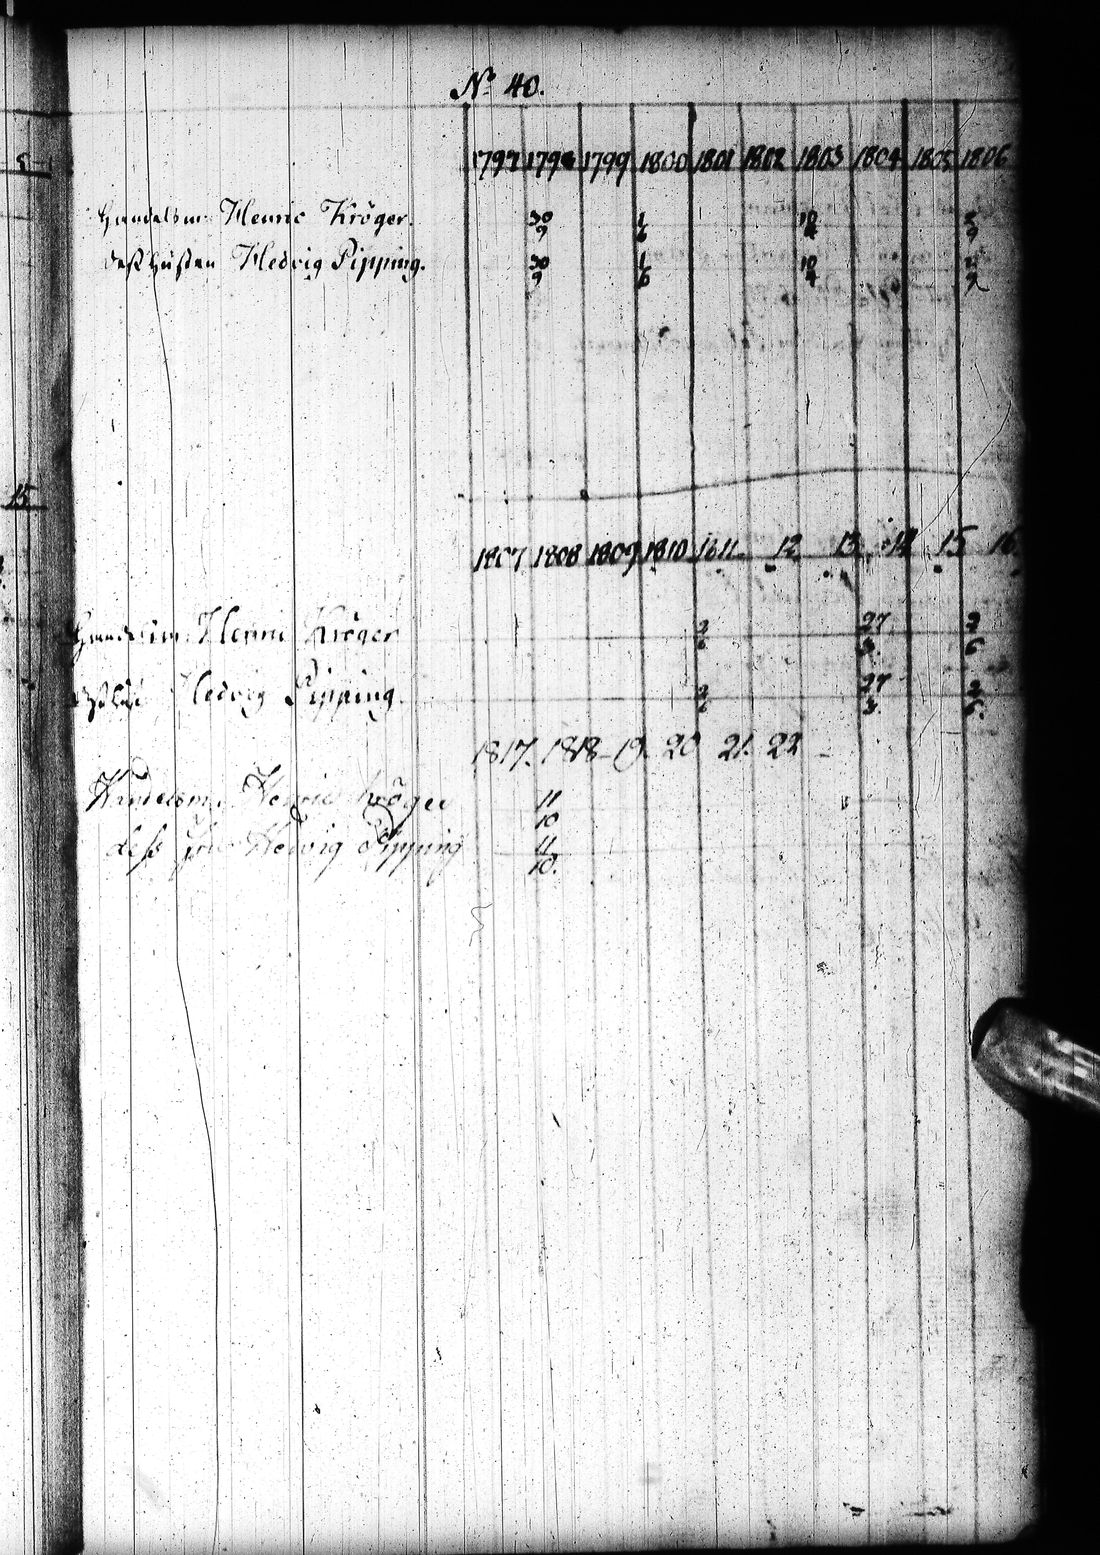 No 40.
1797 1798 1799 1800 1801 1802 1803 1804 1805 1806
Handelsm: Henric Kröger. 30/9 1/6 10/4 2/9
dess hustru Hedvig Pipping. 30/9 1/6 10/4 2/9
1807 1808 1809 1810 1811 12 13 14 15 16
Handelsm: Henric Kröger 27
Hedvig Pipping. 27
1817. 1818 - 19. 20 21. 22
Handelsm. Henric Kröger 11/10
dess Hedvig Pipping 11/10.
15